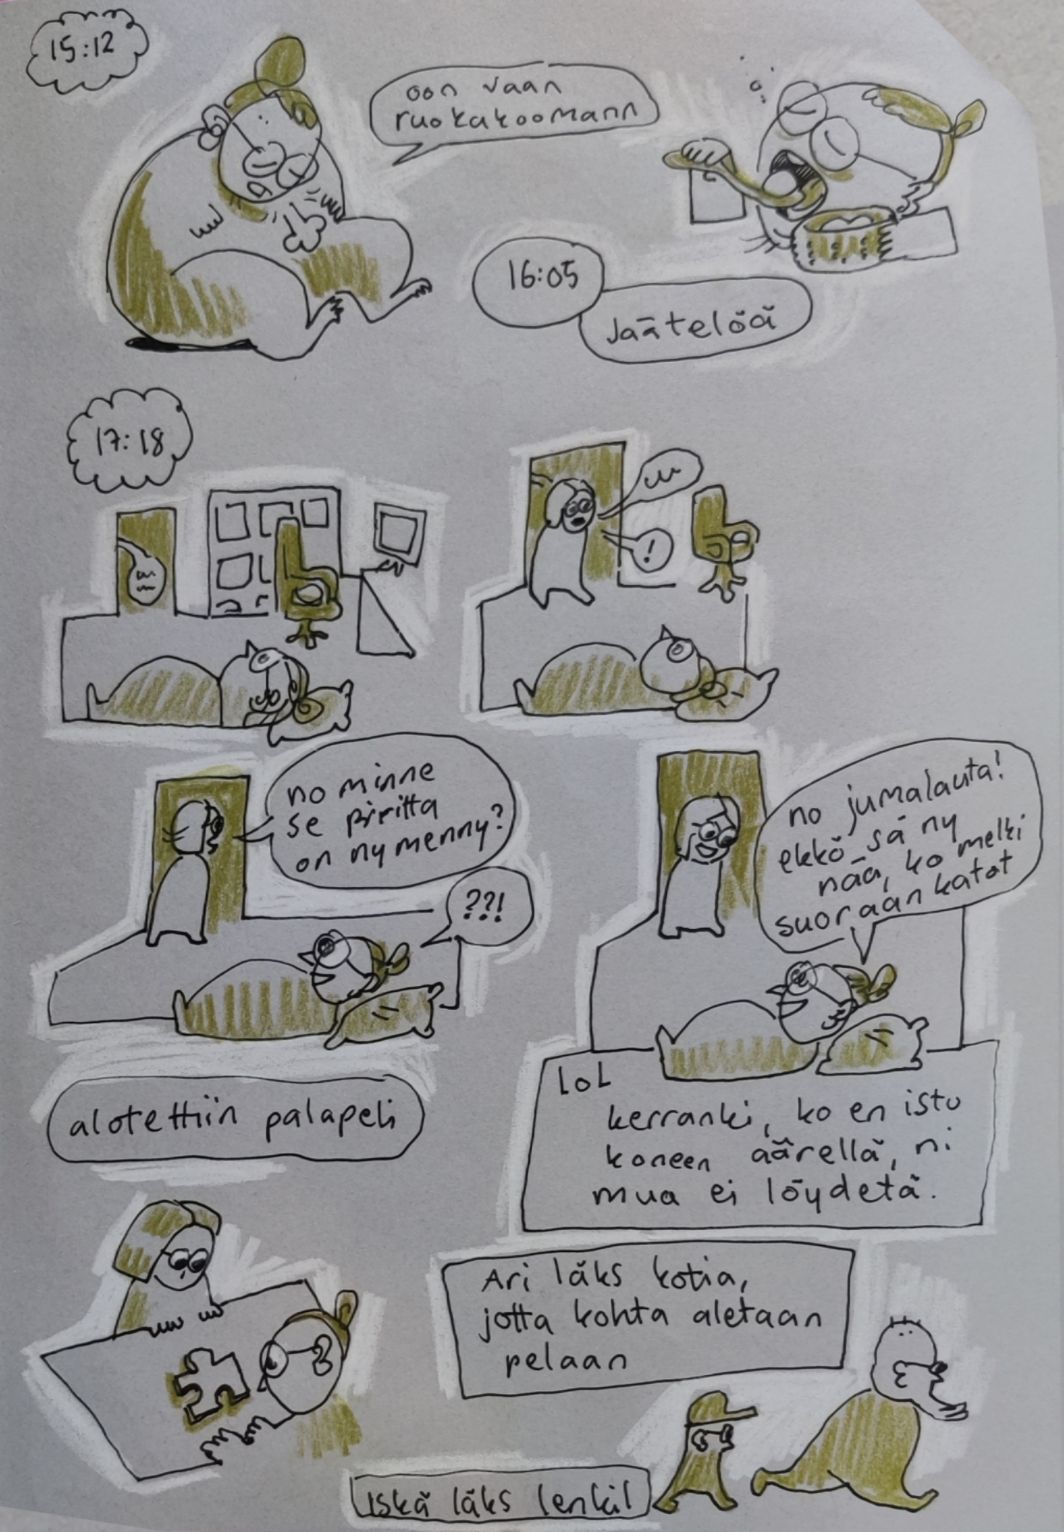 15:12
oon vaan
ruokakoomann
16:05
Jäätelöä
17:18
!
no minne
se piritta
on ny menny?
??!
no jumalauta!
ekkö sä ny
nää, ko melki
suoraan katot
LOL
kerranki, ko en istu
koneen äärellä, ni
mua ei löydetä.
alotettiin palapeli
Ari läks kotia,
jotta kohta aletaan
pelaan
iskä läks lenkil